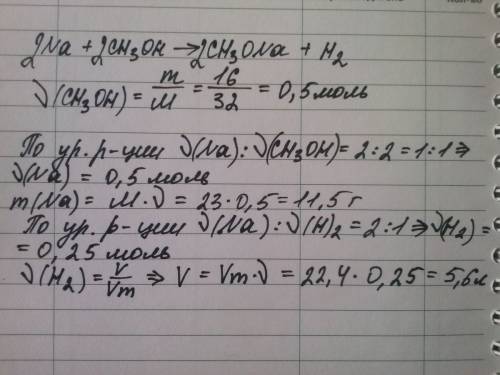 2Na + 2CH₃OH → 2CH₃ONa + H₂
ν(CH₃OH) = m/M = 16/32 = 0,5 моль
По ур. р-ции ν(Na):ν(CH₃OH) = 2:2 = 1:1 ⇒
ν(Na) = 0,5 моль
m(Na) = M·ν = 23·0,5 = 11,5 г
По ур. р-ции ν(Na):ν(H)₂ = 2:1 ⇒ ν(H₂) =
= 0,25 моль
ν(H₂) = V/Vm ⇒ V = Vm·ν = 22,4·0,25 = 5,6 л